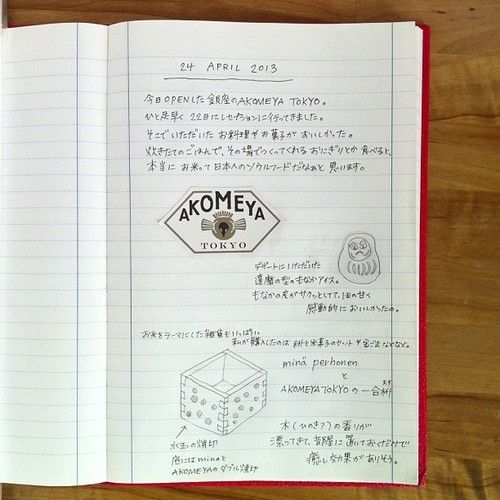 24 APRIL 2013
今日OPENした銀座のAKOMEYA TOKYO。
ひと足早く 22日にレセプションに行ってきました。
そこでいただいた お料理や お菓子が おいしかった。
炊きたてのごはんで、その場でつくってくれる おにぎりとか 食べると、
本当に お米って日本人のソウルフードだなぁと 思います。
AKOMEYA
TOKYO
デザートにいただいた
達磨の型のもなかアイス。
もなかの皮がサクッとしてて、
甘く
感動的に おいしかったの。
お米をテーマにした雑貨もいっぱい。
私が購入したのは お米と米菓子のセットや 金ごまなどなど。
minä perhonen
と
AKOMEYA TOKYO の 一合枡
木(ひのき?)の香りが
漂ってきて、お部屋に 置いておくだけで
癒し効果が ありそう。
水玉の焼印
底にはminäと
AKOMEYAのダブル焼印